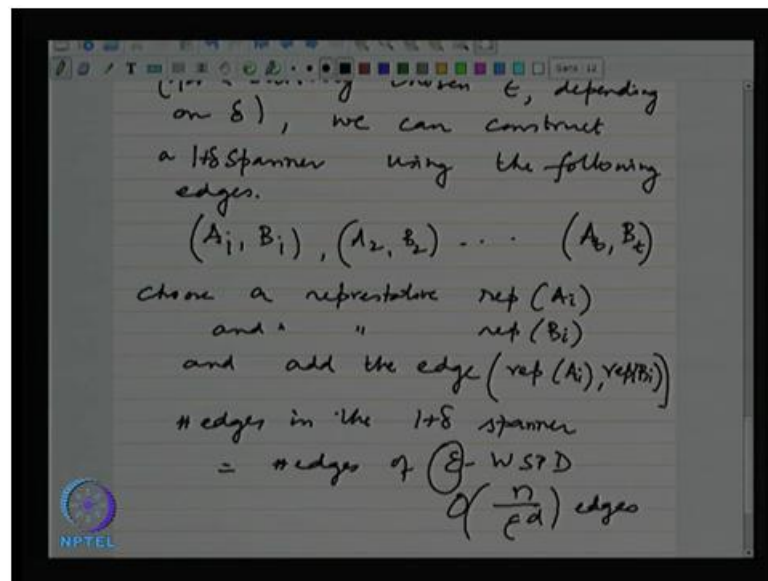 chosen ε, depending
on δ), we can construct
a 1+δ spanner using the following
edges.
(Ai, Bi), (A2, B2) .... (At, Bt)
choose a represtative rep (Ai)
and " " rep (Bi)
and add the edge (rep (Ai), rep(Bi))
# edges in the 1+δ spanner
= # edges of ε- WSPD
O(n/εd) edges
NPTEL